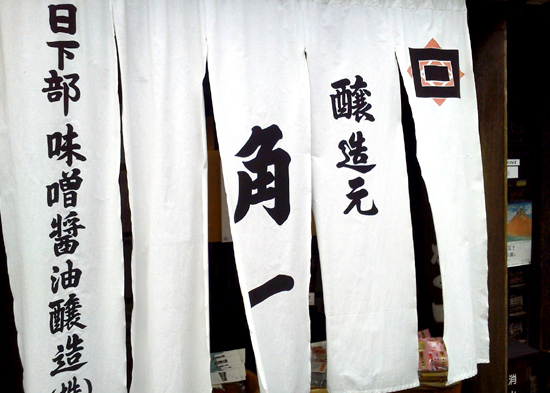 醸造元
角一
日下部味噌醤油醸造(株)
消